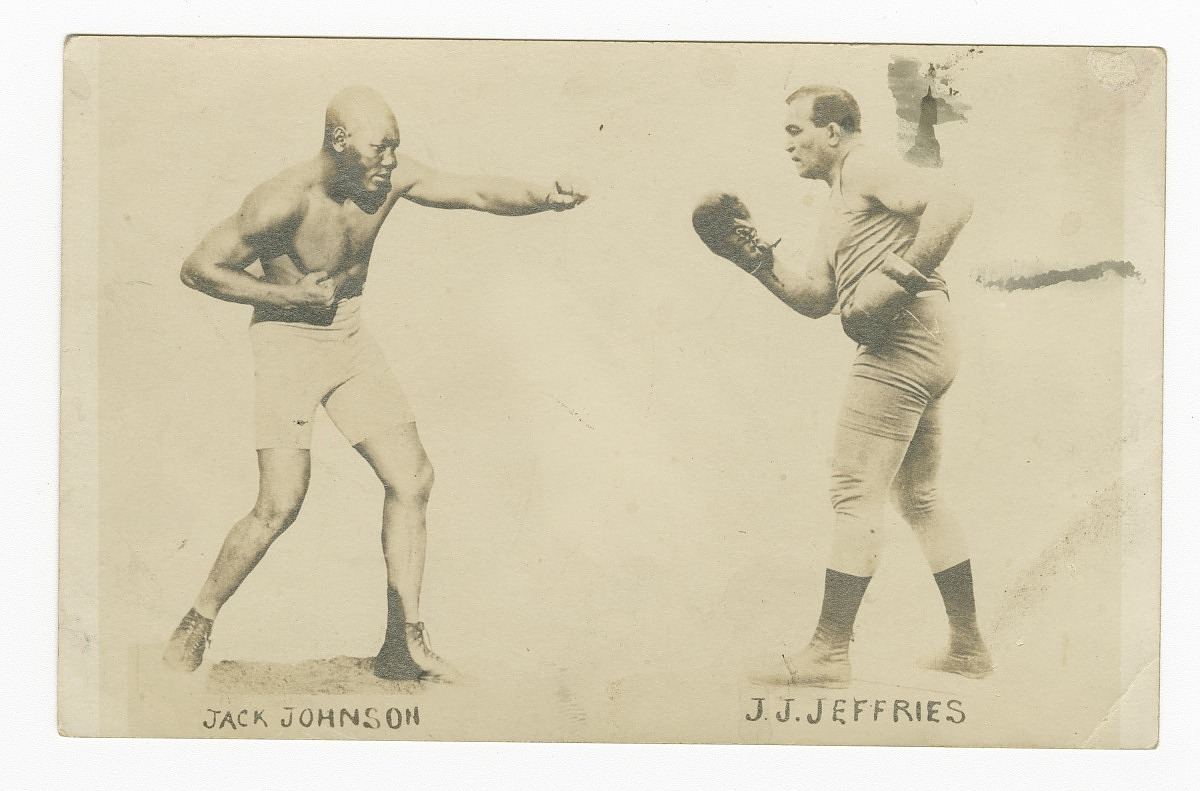 JACK JOHNSON
J.J.JEFFRIES